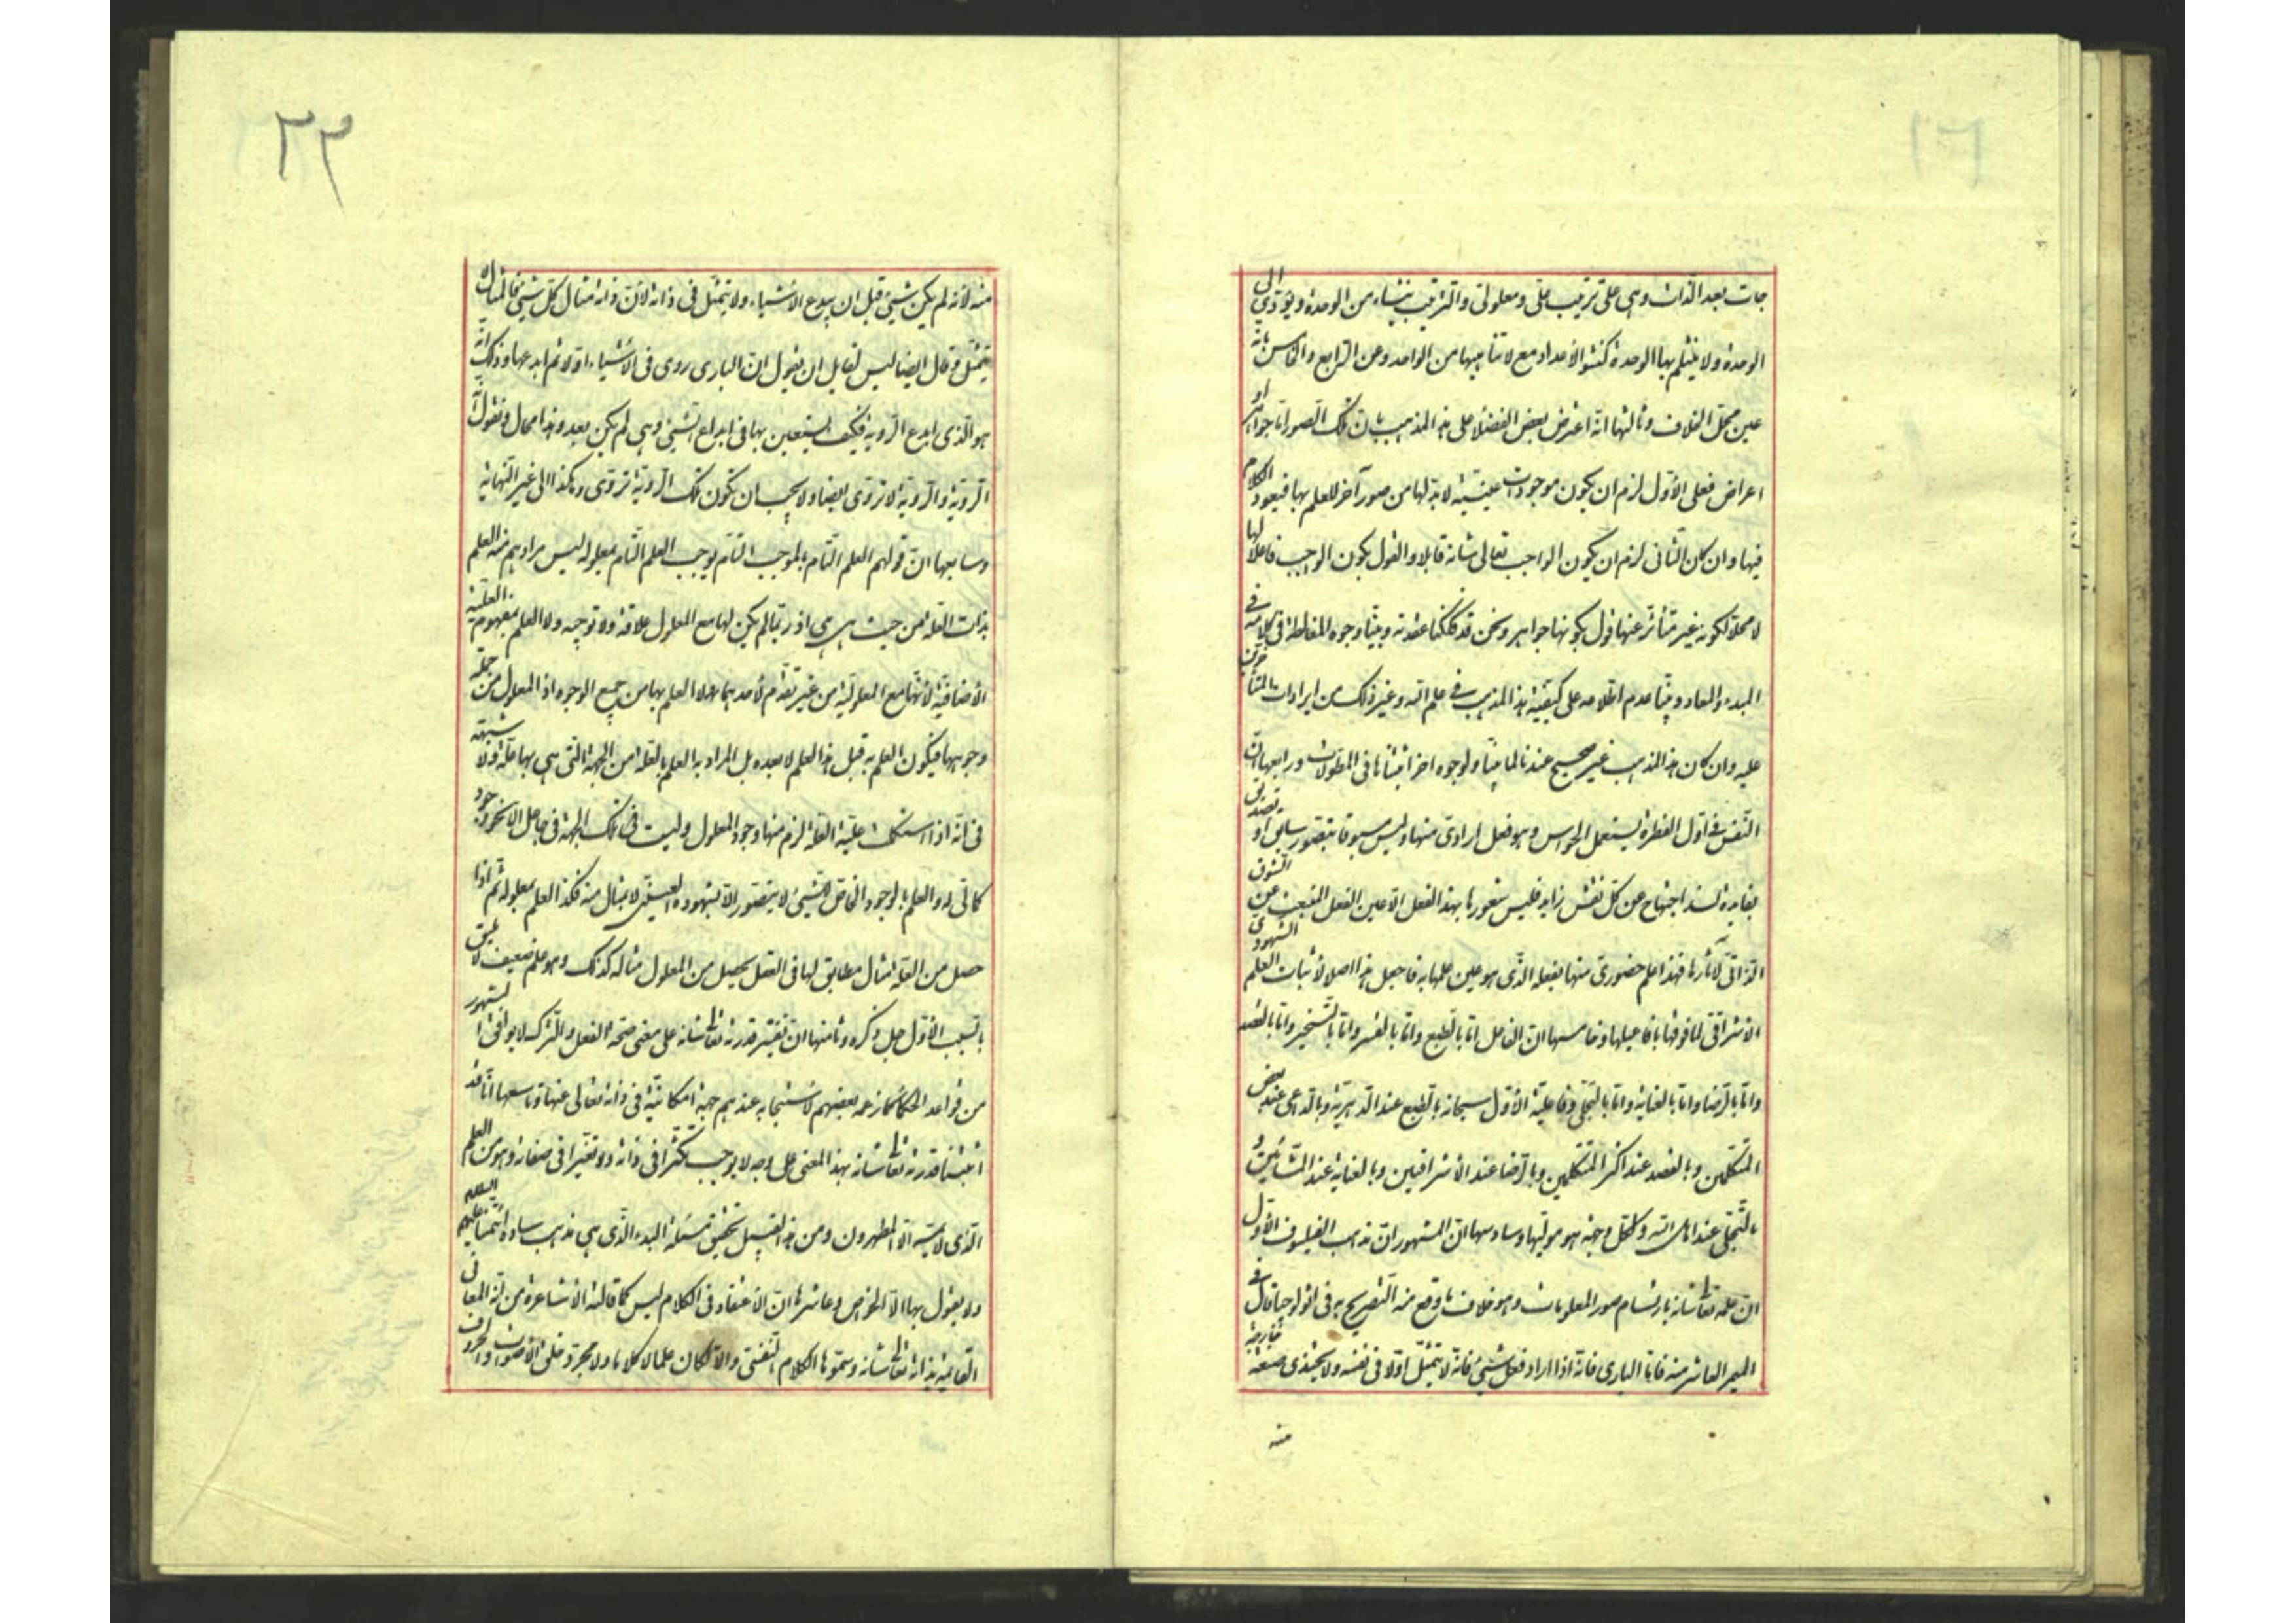 جات بعد الذات وهى على ترتيب علّى ومعلولى والترتيب ينشاء من الوحدة ويؤدى الى
الوحدة ولا ينثلم بها الوحدة كنشو الأعداد مع لا تناهيها من الواحد وعن الرابع والخامس بانه
عين محل الخلاف وثالثها انه اعترض بعض الفضلا على هذا المذهب بان تلك الصور اما جواهر او
اعراض فعلى الأول لزم ان يكون موجودات عينيته لا بد لها من صور آخر للعلم بها فيعود الكلام
فيها وان كان الثانى لزم ان يكون الواجب تعالى شانه قابلا والقول بكون الواجب فاعلا لها
لا محلا لكونه غير متأثر عنها قول بكونها جواهر ونحن قد فككنا عقدته وبينا وجوه المغالطة فى كلامه فى
المبدء والمعاد وبينا عدم اطلاعه على كيفية هذا المذهب فى علم الله وغير ذلك من ايرادات المتأخرين
عليه وان كان هذا المذهب غير صحيح عندنا لما بينا ولوجوه اخر اثبتناها فى المطولات ورابعها ان
النفس فى اول الفطرة يستعمل الحواس وهو فعل ارادى منها وليس مسبوقا بتصور سابق او تصديق
بفايدة لسذاجتها عن كل نقش زايد فليس شعورها بهذا الفعل الا عين الفعل المنبعث عن الشوق
الذاتى لآثارها فهذا علم حضورى منها بفعله الذى هو عين علمها به فاجعل هذا اصلا لأثبات العلم الشهودى
الاشراقى لما فوقها بافاعيلها وخامسها ان الفاعل اما بالطبع واما بالقسر واما بالتسخير واما بالقصد
واما بالرضا واما بالعناية واما بالتجلى وفاعلية الأول سبحانه بالطبع عند الدهرية وبالداعى عند بعض
المتكلمين وبالقصد عند اكثر المتكلمين وبالرضا عند الأشراقيين وبالعناية عند المشائين و
بالتجلى عند اهل الله ولكل وجهة هو موليها وسادسها ان المشهور ان مذهب الفيلسوف الأول
ان علمه تعالى شانه بارتسام صور المعلومات وهو خلاف ما وقع منه التصريح به فى اثولوجيا قال فى
الميمر العاشر منه فاما البارى فانه اذا اراد فعل شىء فانه لا يتمثل اولا فى نفسه ولا يحتذى صنعة خارجة
منه
٢٣
منه لأنه لم يكن شىء قبل ان يبدع الأشياء ولا يتمثل فى ذاته لأن ذاته مثال كل شىء فالمثال لا
يتمثل وقال ايضا ليس لقايل ان يقول ان البارى روى فى الأشياء اولا ثم ابدعها وذلك انه
هو الذى ابدع الروية فكيف يستعين بها فى ابداع الشىء وهى لم يكن بعد وهذا محال ونقول انه
الروية والروية لا تروى ايضا ولا يجب ان تكون تلك الروية تروى وهكذا الى غير النهاية
وسابعها ان قولهم العلم التام بالموجب التام يوجب العلم التام بمعلوله ليس مرادهم منه العلم
بذات العلة من حيث هى هى اذ ربما لم يكن لها مع المعلول علاقة ولا توجبه ولا العلم بمفهوم العلية
الأضافية لأنها مع المعلولية من غير تقدم لأحدهما ولا العلم بها من جميع الوجوه اذ المعلول من جملة
وجوهها فيكون العلم به قبل هذا العلم لا بعده بل المراد به العلم بالعلة من الجهة التى هى بها علة ولا شبهة
فى انه اذا استكملت علية العلة لزم منها وجود المعلول وليست فى تلك الجهة فى جاعل الا نحو وجوده
كما فى له والعلم بالوجود الخاص لشىء لا يتصور الا بشهوده العينى لا بمثال منه فكذا العلم بمعلوله ثم اذا
حصل من العلة مثال مطابق لها فى العقل يحصل من المعلول مثاله كذلك وهو علم ضعيف لا يليق
بالسبب الأول جل ذكره وثامنها ان تفسير قدرته تعالى شانه على معنى صحة الفعل والترك لا يوافق المشهور
من قواعد الحكماء كما زعمه بعضهم لاستيجابه عندهم جهة امكانية فى ذاته تعالى عنها وتاسعها انا قد
اثبتنا قدرته تعالى شانه بهذا المعنى على وجه لا يوجب تكثرا فى ذاته ولا تغيرا فى صفاته وهو من العلم
الذى لا يمسه الا المطهرون ومن هذا القبيل تحقيق مسئلة البدء الذى هى مذهب ساداة ائمتنا عليهم السلام
ولا يقول بها الا الخواص وعاشرها ان الأعتقاد فى الكلام ليس كما قالته الأشاعرة من انه المعانى
القائمة بذاته تعالى شانه وسموها الكلام النفسى والا لكان علما لا كلاما ولا مجرد خلق الأصوات والحروف